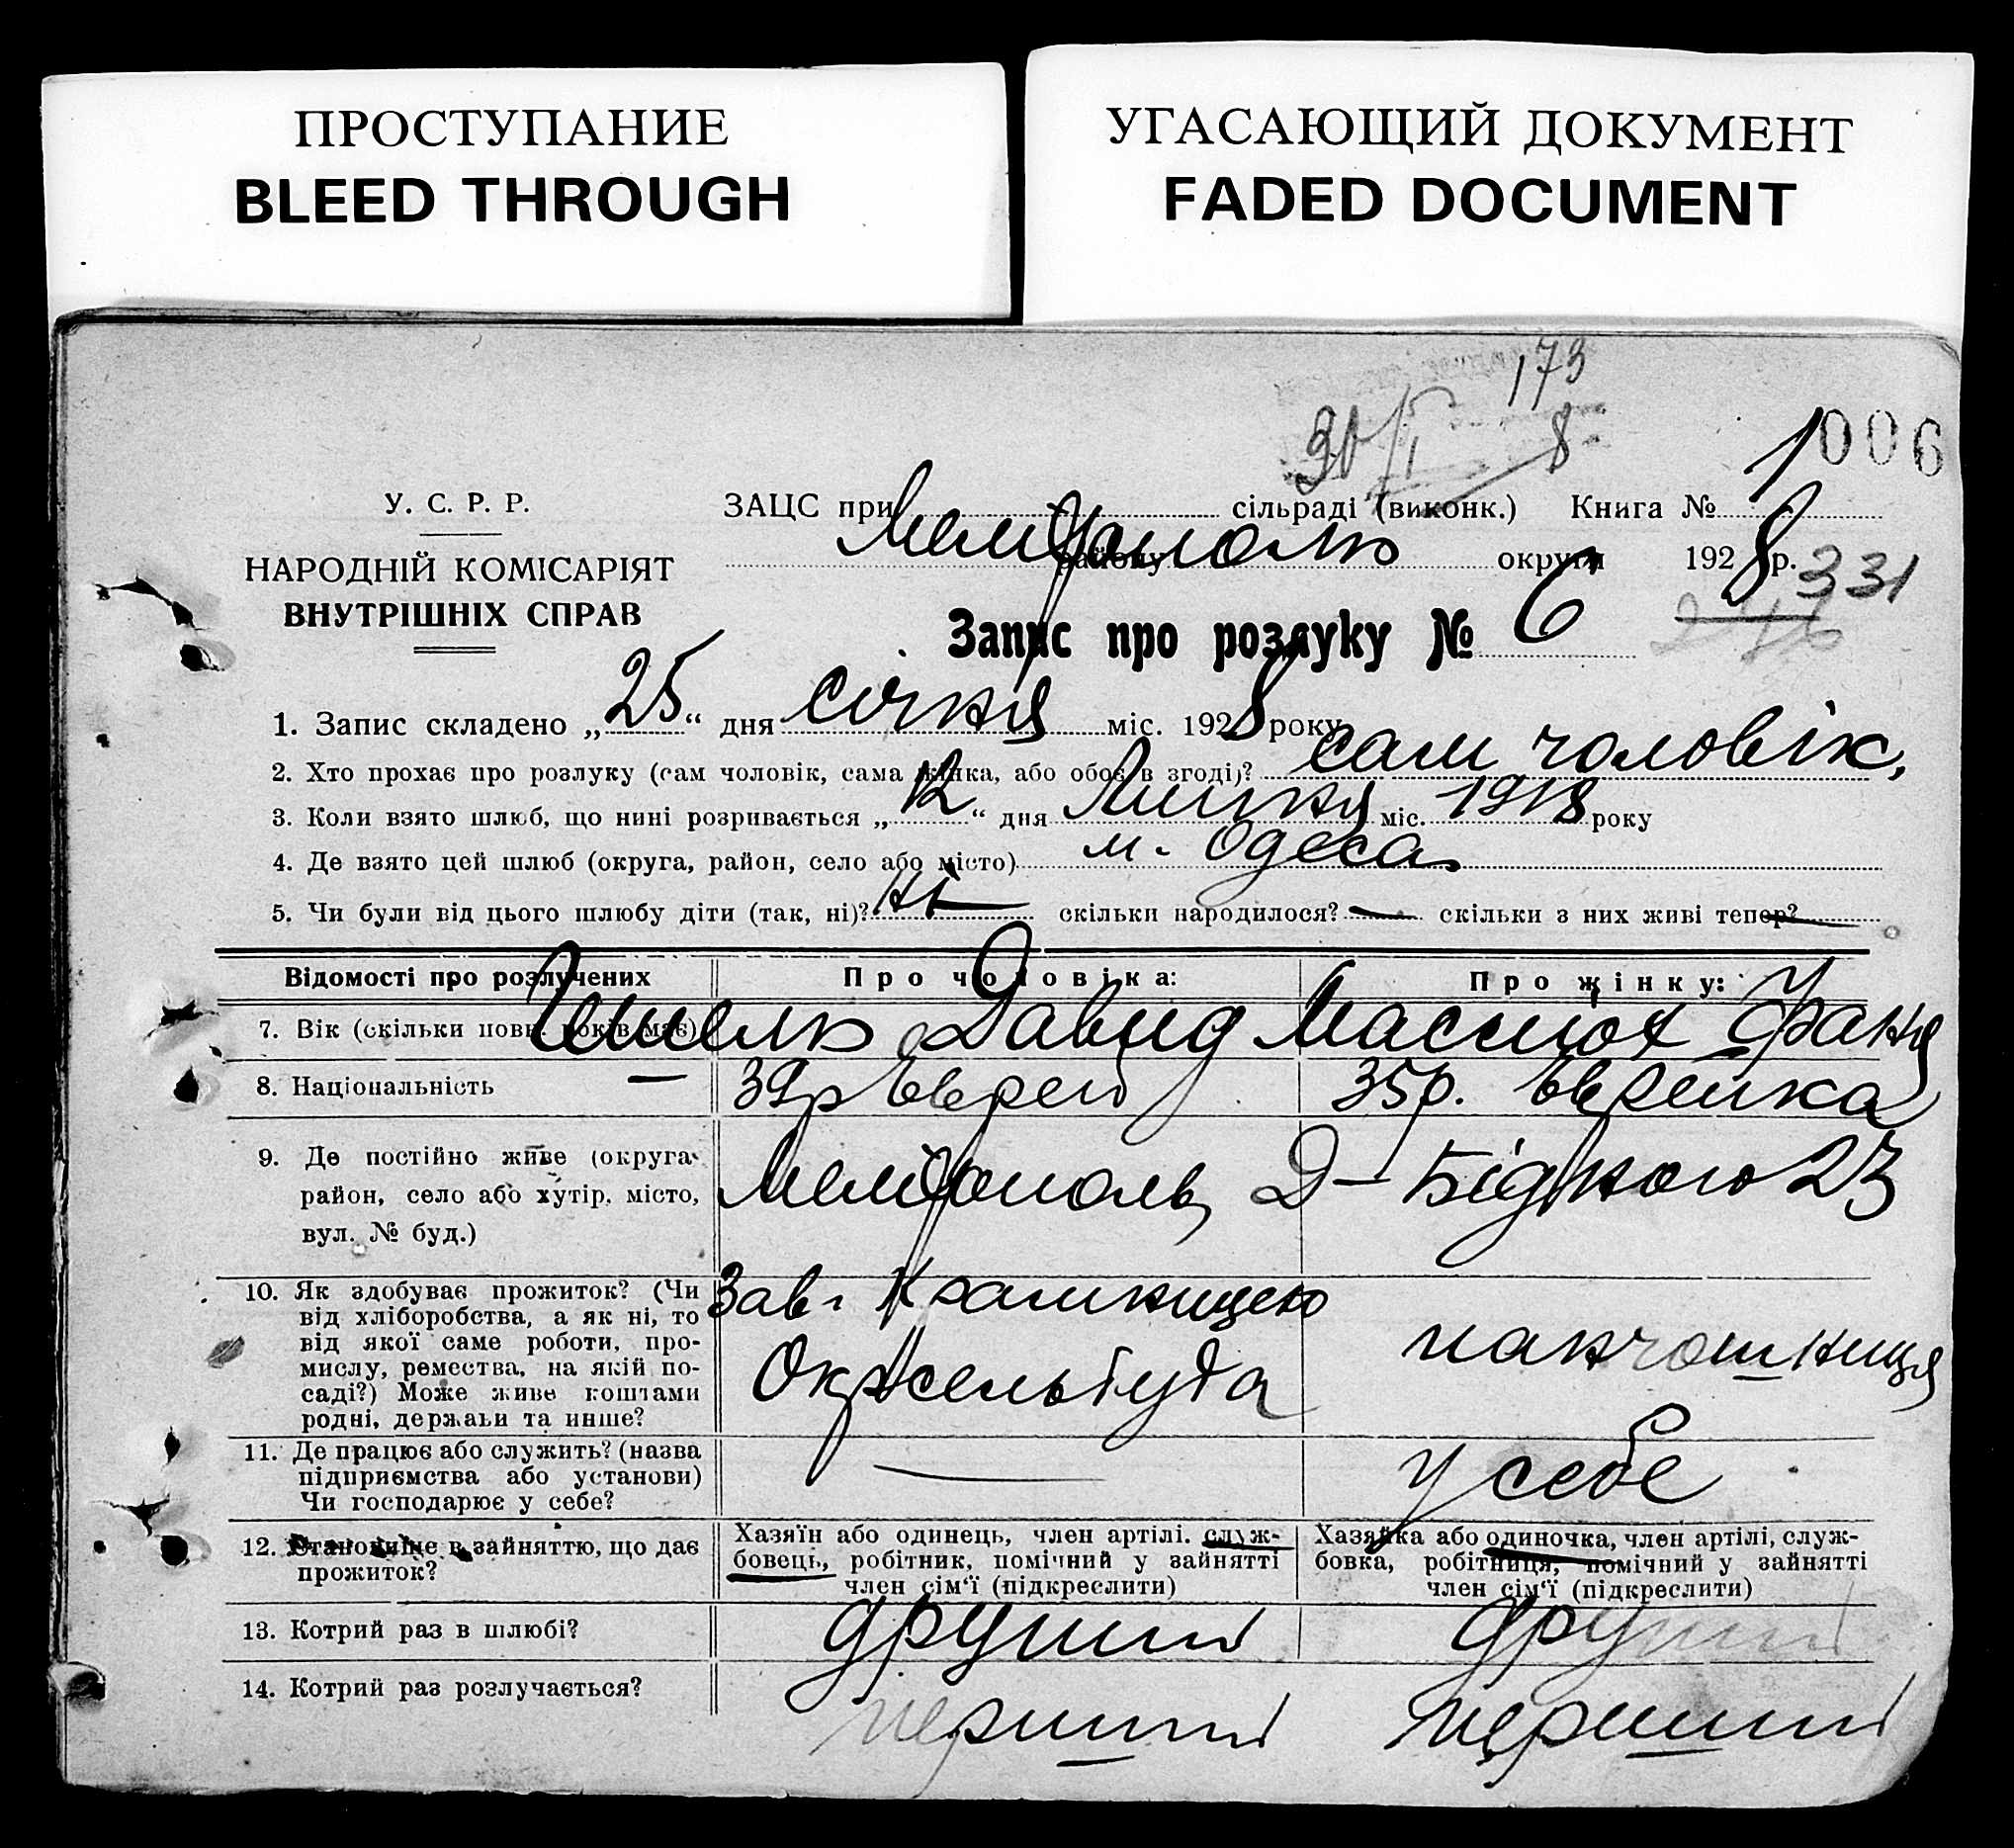 ПРОСТУПАНИЕ
BLEED THROUGH
УГАСАЮЩИЙ ДОКУМЕНТ
FADED DOCUMENT
173
30/I 8
1006
У. С. Р. Р.
НАРОДНІЙ КОМІСАРІЯТ
ВНУТРІШНІХ СПРАВ
ЗАЦС при сільраді (виконк.) Книга №
Мелітополь району округи 1928 р.
331
Запис про розлуку № 6
1. Запис складено „25“ дня січня міс. 1928 року
2. Хто прохає про розлуку (сам чоловік, сама жінка, або обоє в згоді)? сам чоловік,
3. Коли взято шлюб, що нині розривається „12“ дня Липня міс. 1918 року
4. Де взято цей шлюб (округа, район, село або місто) м. Одеса
5. Чи були від цього шлюбу діти (так, ні)? ні скільки народилося? — скільки з них живі тепер? —
Відомості про розлучених
Про чоловіка:
Про жінку:
7. Вік (скільки повн. років має)
Давид
Фаня
8. Національність
39р Єврей
35р. Єврейка
9. Де постійно живе (округа, район, село або хутір, місто, вул. № буд.)
Мелітополь, Д-Бідного 23
10. Як здобуває прожиток? (Чи
від хліборобства, а як ні, то
від якої саме роботи, про-
мислу, ремества, на якій по-
саді?) Може живе коштами
родні, держави та инше?
Зав. Крамницею
панчошниця
11. Де працює або служить? (назва
підприємства або установи)
Чи господарює у себе?
—
у себе
12. Становище в зайняттю, що дає
прожиток?
Хазяїн або одинець, член артілі, служ-
бовець, робітник, помічний у зайнятті
член сім'ї (підкреслити)
Хазяйка або одиночка, член артілі, служ-
бовка, робітниця, помічний у зайнятті
член сім'ї (підкреслити)
13. Котрий раз в шлюбі?
другий
другий
14. Котрий раз розлучається?
перший
перший